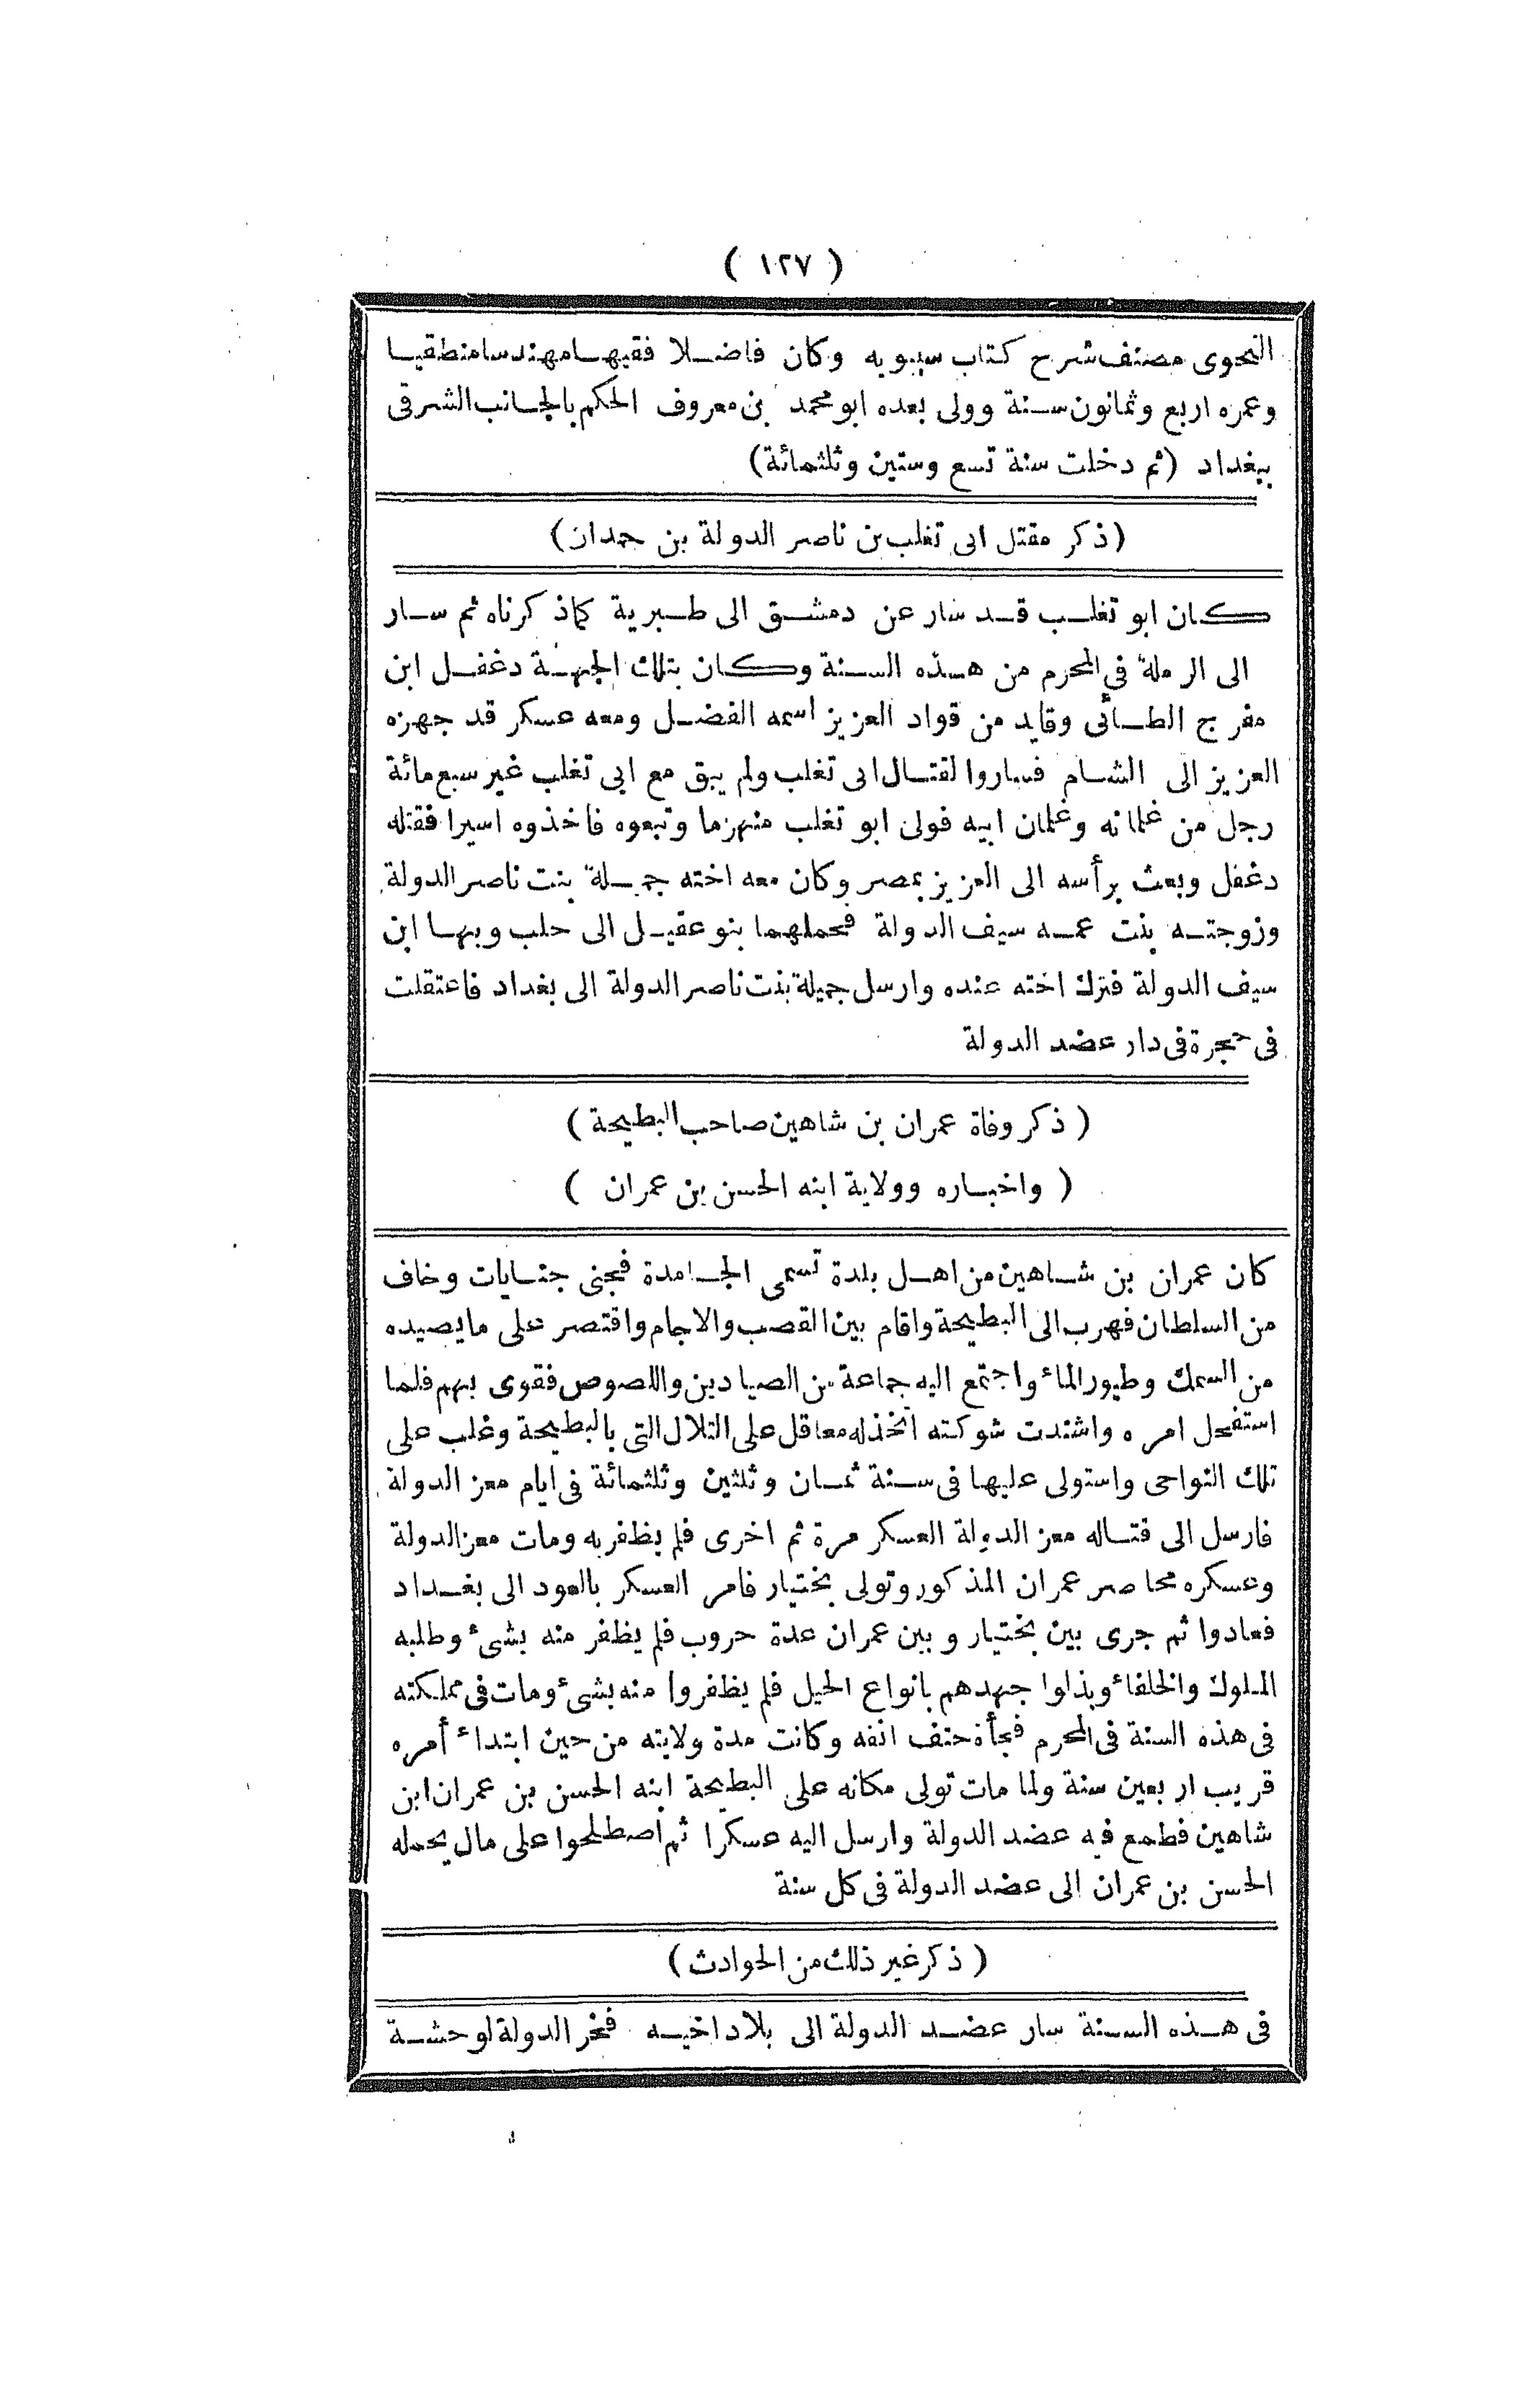 ( ١٢٧ )
النحوى مصنف شرح كتاب سيبويه وكان فاضلا فقيها مهندسا منطقيا
وعمره اربع وثمانون سنة وولى بعده ابو محمد بن معروف الحكم بالجانب الشرقى
ببغداد (ثم دخلت سنة تسع وستين وثلثمائة)
(ذكر مقتل ابى تغلب بن ناصر الدولة بن حمدان)
كان ابو تغلب قد سار عن دمشق الى طبرية كما ذكرناه ثم سار
الى الرملة فى المحرم من هذه السنة وكان بتلك الجهة دغفل ابن
مفرج الطائى وقايد من قواد العزيز اسمه الفضل ومعه عسكر قد جهزه
العزيز الى الشام فساروا لقتال ابى تغلب ولم يبق مع ابى تغلب غير سبع مائة
رجل من غلمانه وغلمان ابيه فولى ابو تغلب منهزما وتبعوه فاخذوه اسيرا فقتله
دغفل وبعث برأسه الى العزيز بمصر وكان معه اخته جميلة بنت ناصر الدولة
وزوجته بنت عمه سيف الدولة فحملهما بنو عقيل الى حلب وبها ابن
سيف الدولة فترك اخته عنده وارسل جميلة بنت ناصر الدولة الى بغداد فاعتقلت
فى حجرة فى دار عضد الدولة
( ذكر وفاة عمران بن شاهين صاحب البطيحة )
( واخباره وولاية ابنه الحسن بن عمران )
كان عمران بن شاهين من اهل بلدة تسمى الجامدة فجنى جنايات وخاف
من السلطان فهرب الى البطيحة واقام بين القصب والاجام واقتصر على مايصيده
من السمك وطيور الماء واجتمع اليه جماعة من الصيادين واللصوص فقوى بهم فلما
استفحل امره واشتدت شوكته اتخذ له معاقل على التلال التى بالبطيحة وغلب على
تلك النواحى واستولى عليها فى سنة ثمان وثلثين وثلثمائة فى ايام معز الدولة
فارسل الى قتاله معز الدولة العسكر مرة ثم اخرى فلم يظفر به ومات معز الدولة
وعسكره محاصر عمران المذكور وتولى بختيار فامر العسكر بالعود الى بغداد
فعادوا ثم جرى بين بختيار وبين عمران عدة حروب فلم يظفر منه بشىء وطلبه
الملوك والخلفاء وبذلوا جهدهم بانواع الحيل فلم يظفروا منه بشىء ومات فى مملكته
فى هذه السنة فى المحرم فجأة حتف انفه وكانت مدة ولايته من حين ابتداء أمره
قريب اربعين سنة ولما مات تولى مكانه على البطيحة ابنه الحسن بن عمران ابن
شاهين فطمع فيه عضد الدولة وارسل اليه عسكرا ثم اصطلحوا على مال يحمله
الحسن بن عمران الى عضد الدولة فى كل سنة
( ذكر غير ذلك من الحوادث )
فى هذه السنة سار عضد الدولة الى بلاد اخيه فخر الدولة لوحشة